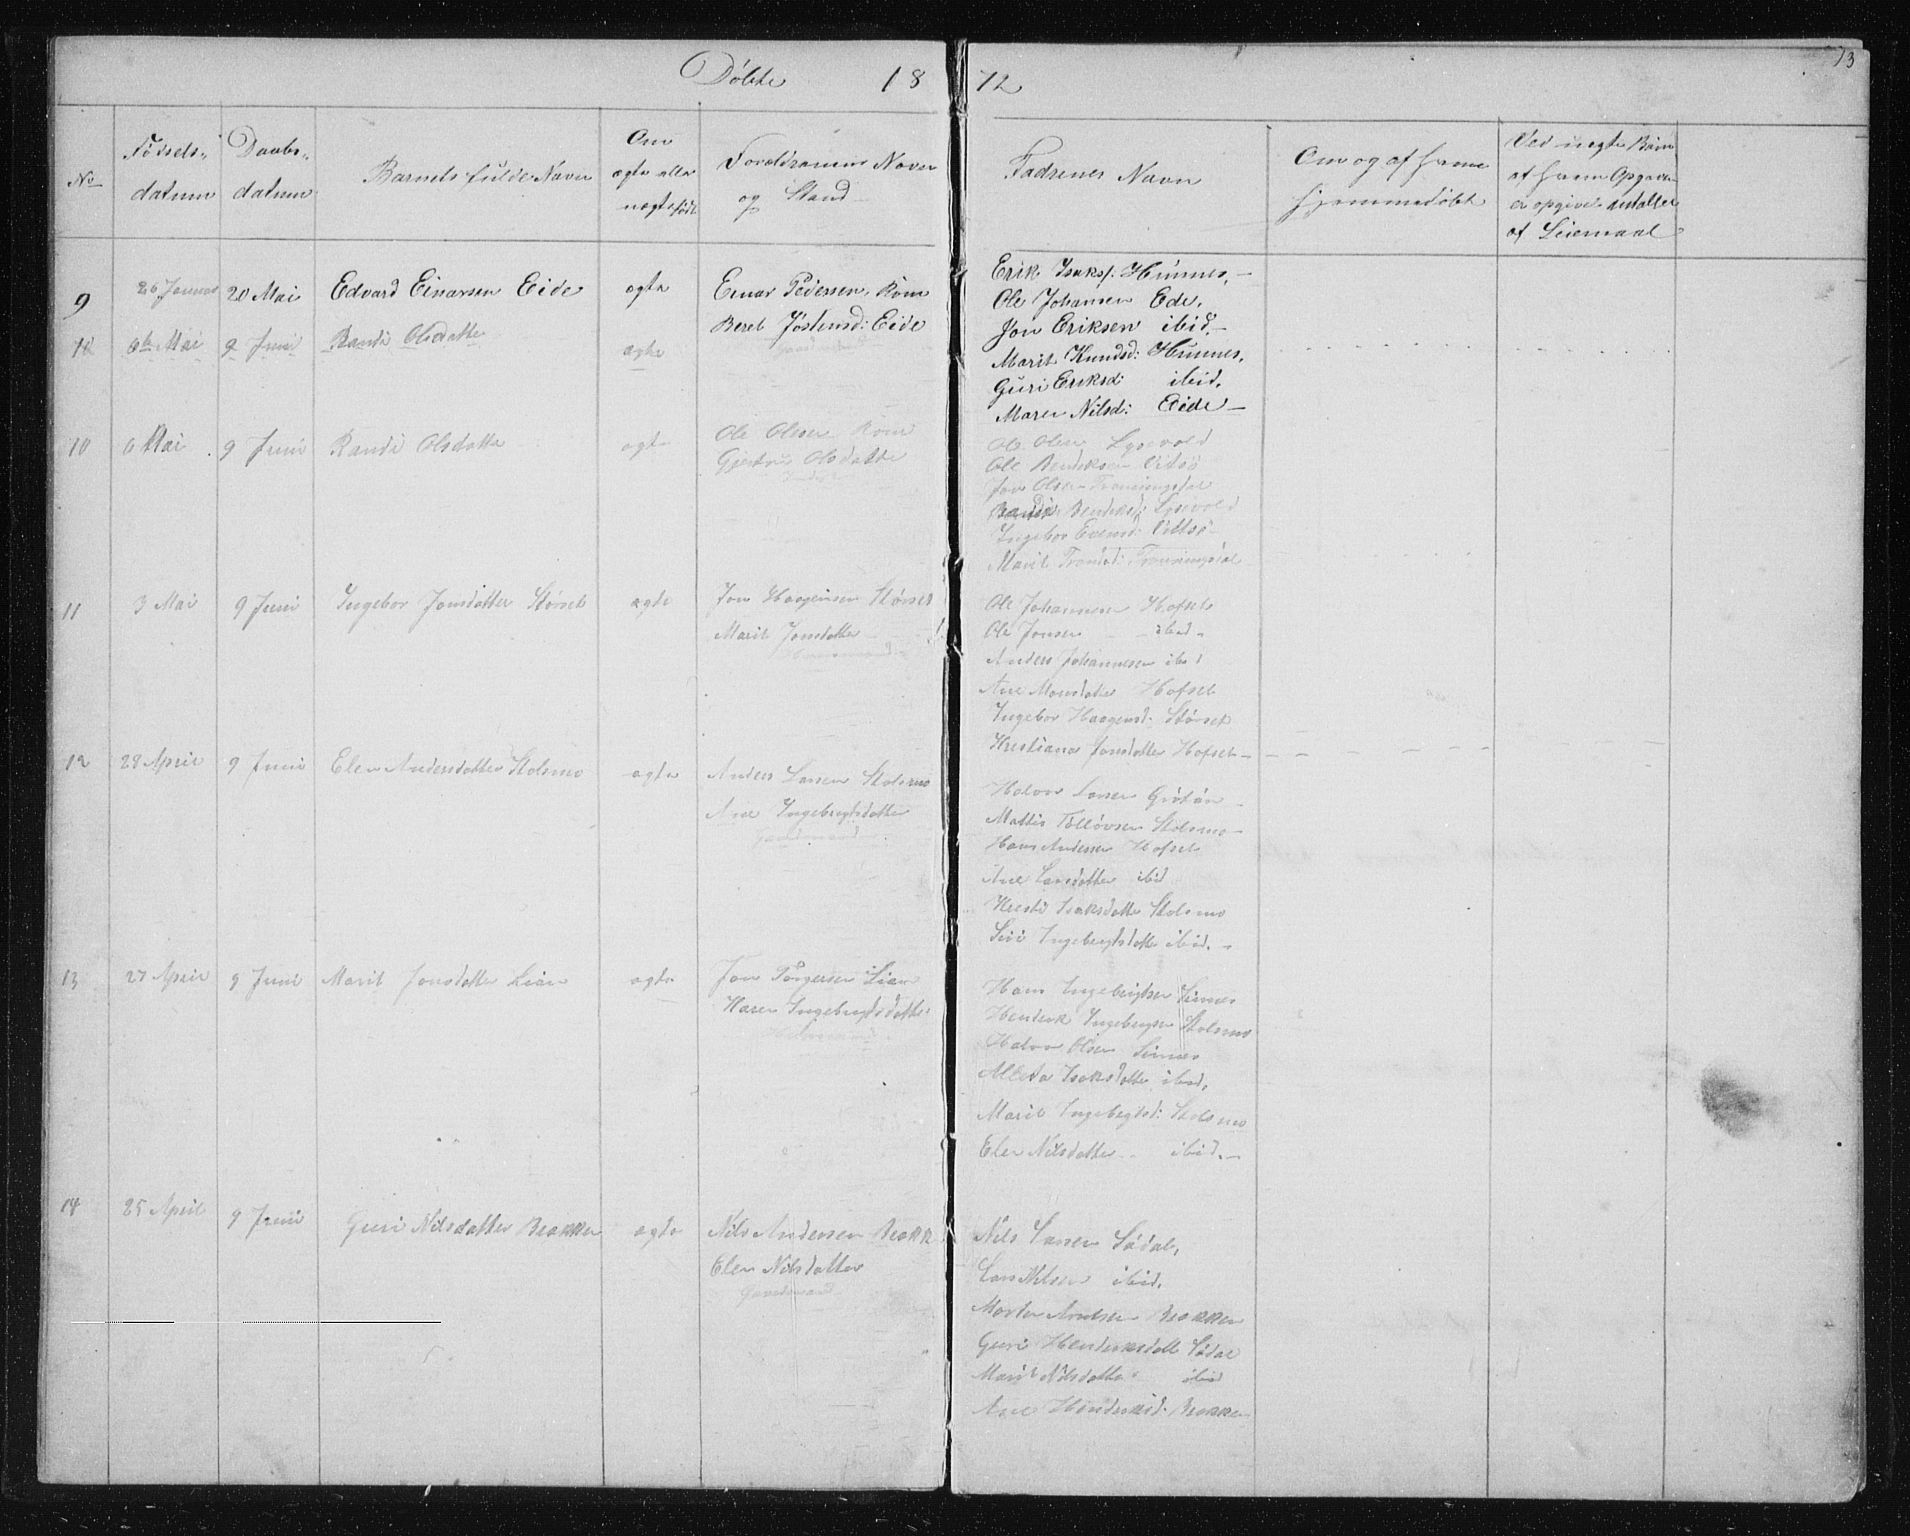 Döbte 18 72
73
No
Födsels-
datum
Daabs-
datum
Barnets fulde Navn
Om
ægte eller
uægte født
Forældrenes Navn
og Stand
Fadrenes Navn
Om og af hvem
hjemmedöbt
Ved uægte Børn
af hvem Opgaven
er opgivet antallet
af Leiermaal
9 26 Januar 20 Mai Edvard Einarsen Eide ægte Einar Pedersen, Kone
Beret Jöstensd: Eide
Erik Isaks: Hünnes,
Ole Johansen Ede,
Jon Eriksen ibid.
Marit Knudsd: Hünnes,
Guri Eriksd: ibid.
Maren Nilsd: Eide
6te Mai 9 Juni Randi Olsdatte ægte
10 6 Mai 9 Juni Randi Olsdatte ægte Ole Olesen Kone
Gjertru Olsdatte
Ole Olsen Lysevold
Ole Bendiksen Vitsö
Jon Olsen
Bendiksd: Lysevold
Ingebor Evensd: Vitsö
Marit
11 3 Mai 9 Juni Ingebor Jonsdatter Störset ægte Jon Haagensen Störset
Marit Jonsdatter
Huusmand
Ole Johannesen Hofset
Ole Jonsen ibid
Anders Johannesen ibid
Ane Monsdatter Hofset
Ingebor Haagensd: Störset
Kristiana Jonsdatter Hofset
12 28 April 9 Juni Elen Andersdatter Stolsmo ægte Anders Larsen Stolsmo
Ane Ingebrigtsdatter
Gaardmand
Halvor Larsen Grötån
Mattis Töllövsen Stolsmo
Hans Andersen Hofset
Ane Larsdatter ibid
Kresti Isaksdatte Stolsmo
Siri Ingebrigtsdatte ibid.
13 27 April 9 Juni Marit Jonsdatter Lian ægte Jon Törgersen Lian
Karen Ingebrigtsdatte
Huusmand
Hans Ingebrigtsen Sinnes
Henderk Ingebrigtsen Stolsmo
Halvor Olsen Sinnes
Alleta Isaksdatte ibid,
Marit Ingebrigtsd: Stolsmo
Elen Nilsdatter ibid.
14 25 April 9 Juni Guri Nilsdatter Brakken ægte Nils Andersen Brakk
Elen Nilsdatter
Gaardmand
Nils Larsen Södal,
Lars Nilsen ibid.
Morten Arntsen Brakken
Guri Henderksdatt Södal
Marit Nilsdatter ibid
Ane Henderksd: Brakken